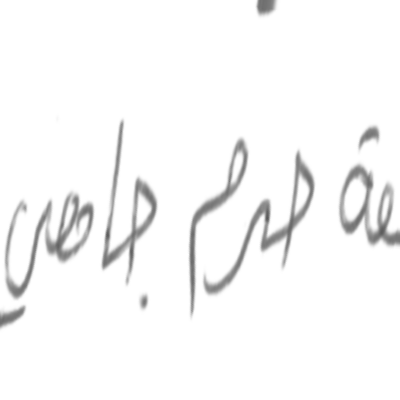 حرم جامعي